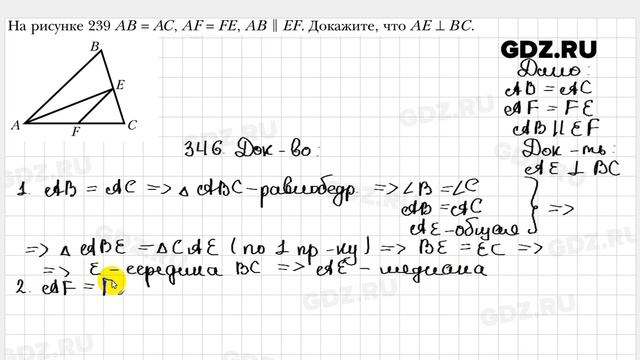 На рисунке 239 AB = AC, AF = FE, AB ∥ EF. Докажите, что AE ⊥ BC.
GDZ.RU
Дано:
AB = AC
AF = FE
AB ∥ EF
Док-ть:
AE ⊥ BC
B
E
A
F
C
346. Док-во:
1. AB = AC => △ ABC - равнобедр. => ∠B = ∠C
AB = AC
AE - общая
} =>
=> △ ABE = △ CAE (по 1 пр-ку) => BE = EC =>
=> E - середина BC => AE - медиана
2. AF =